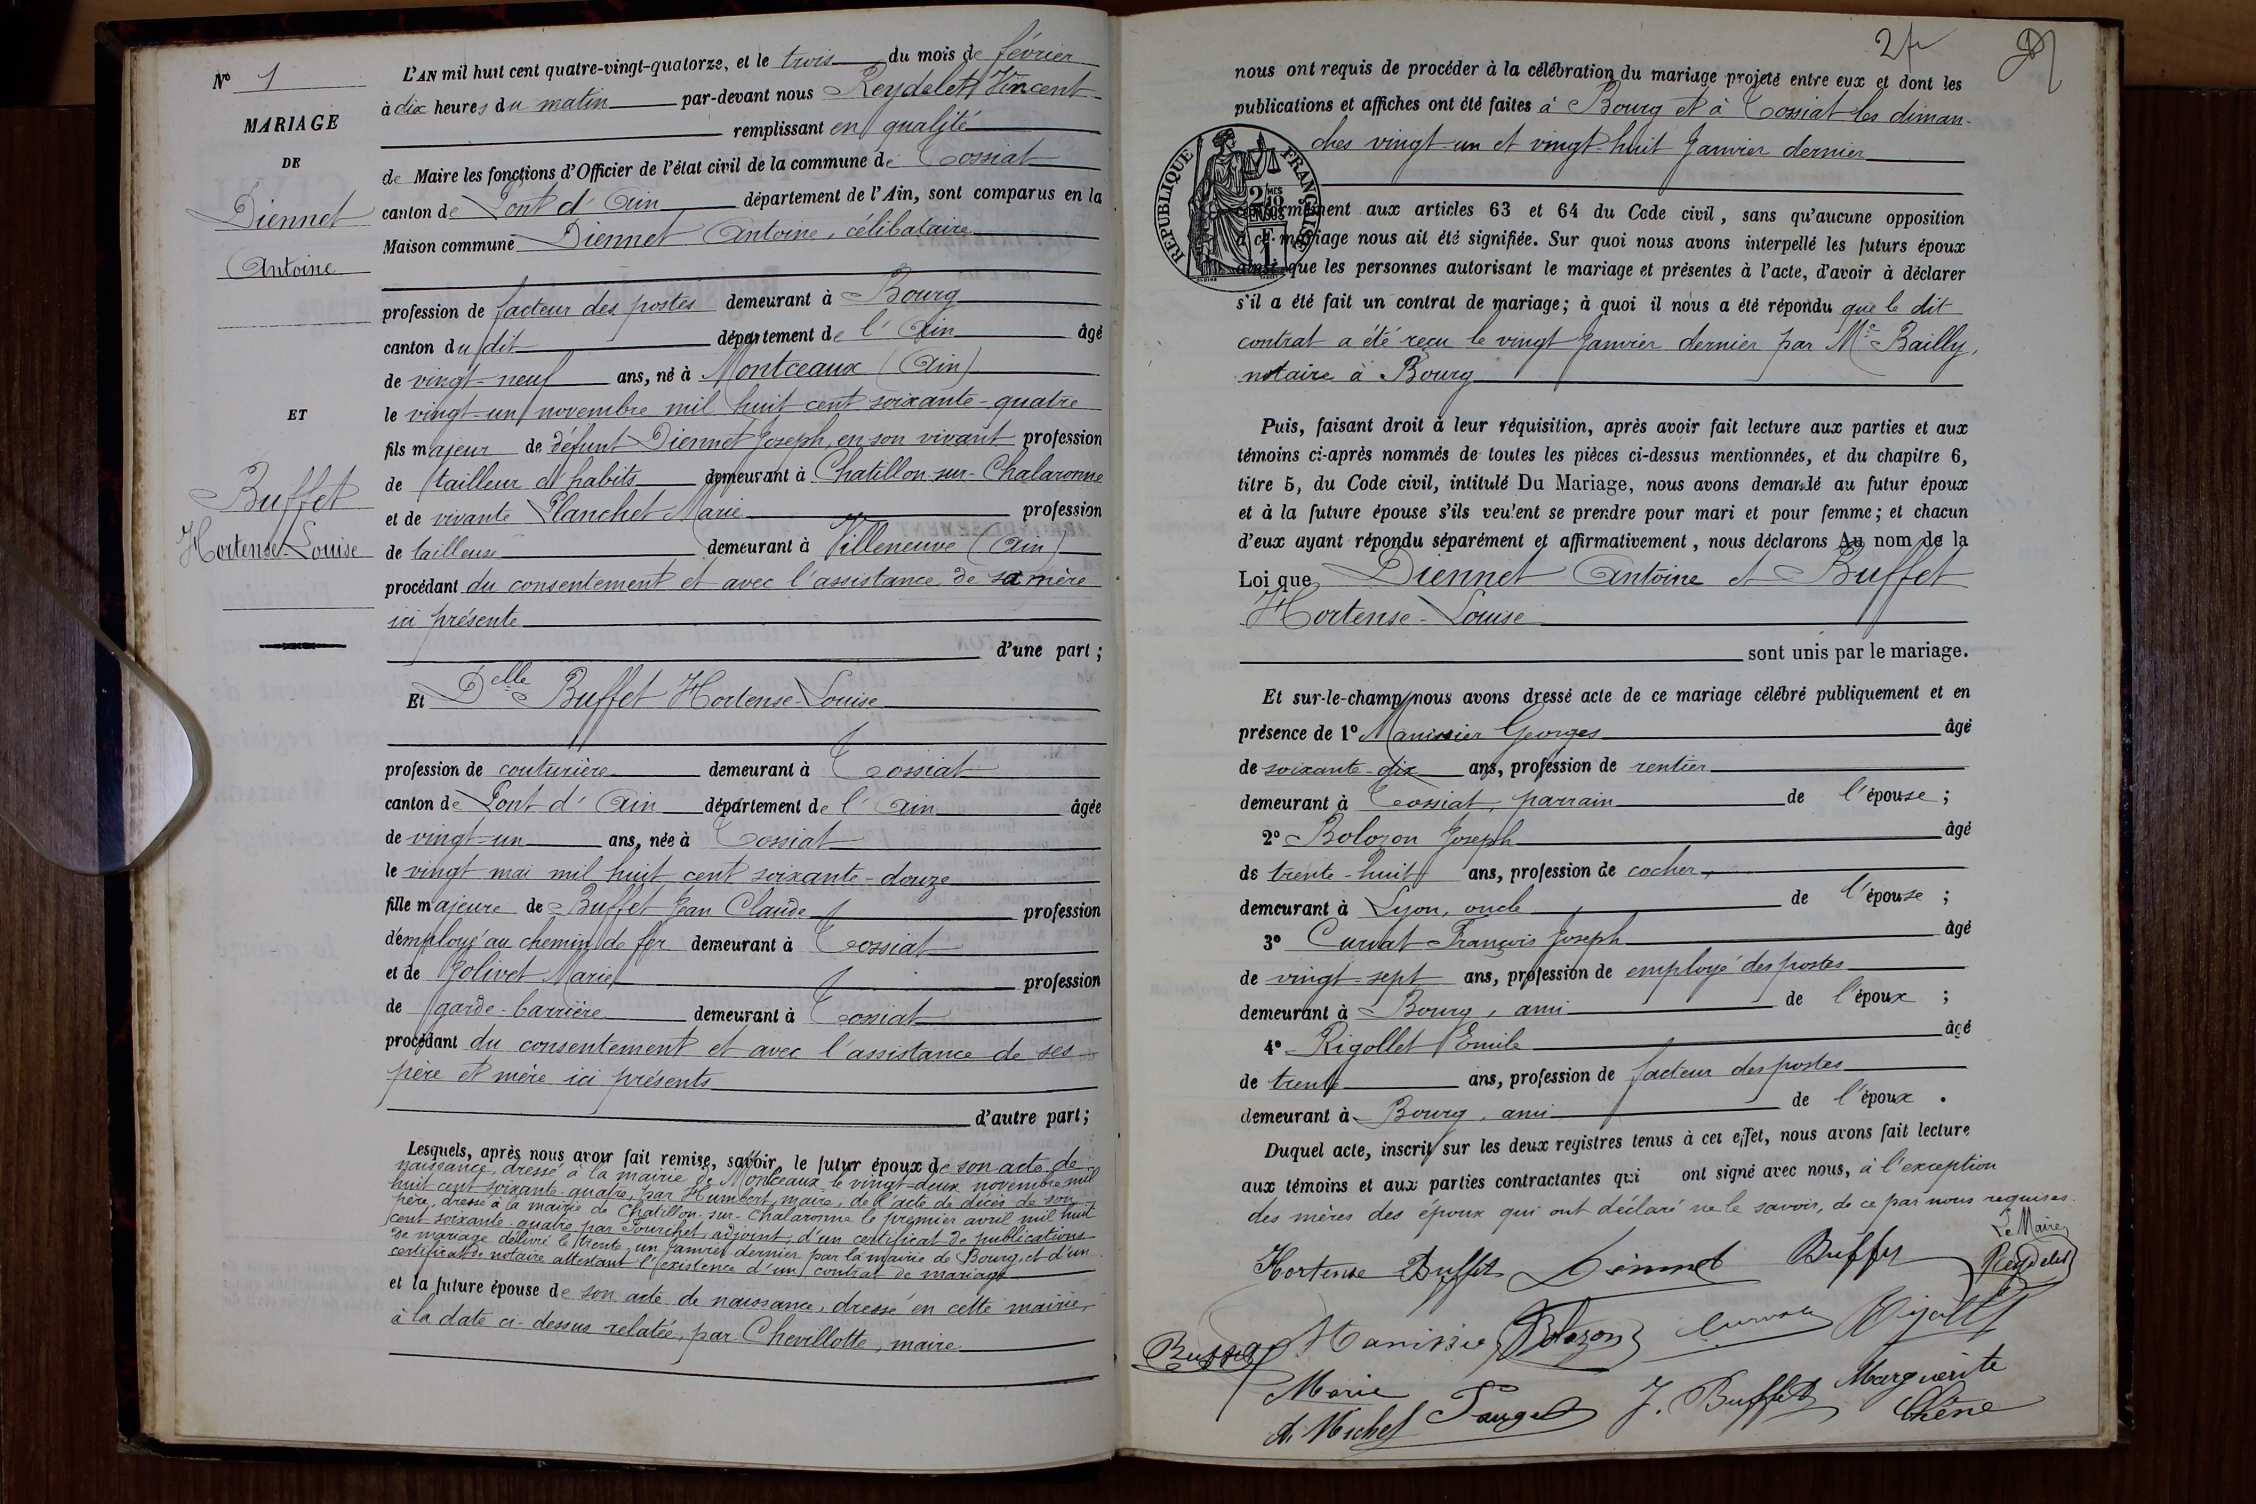 N° 1
MARIAGE
DE
Diennet
Antoine
ET
Buffet
Hortense-Louise
L'AN mil huit cent quatre-vingt-quatorze, et le trois du mois de février
à dix heures du matin par-devant nous Reydelet Vincent
remplissant en qualité
de Maire les fonctions d'Officier de l'état civil de la commune de Tossiat
canton de Pont d'Ain département de l'Ain, sont comparus en la
Maison commune Diennet Antoine, célibataire
profession de facteur des postes demeurant à Bourg
canton du dit département de l'Ain âgé
de vingt-neuf ans, né à Montceaux (Ain)
le vingt-un novembre mil huit cent soixante-quatre
fils majeur de défunt Diennet Joseph, en son vivant profession
de tailleur d'habits demeurant à Chatillon-sur-Chalaronne
et de vivante Planchet Marie profession
de tailleuse demeurant à Villeneuve (Ain)
procédant du consentement et avec l'assistance de sa mère
ici présente
d'une part ;
Et Delle Buffet Hortense-Louise
profession de couturière demeurant à Tossiat
canton de Pont d'Ain département de l'Ain âgée
de vingt-un ans, née à Tossiat
le vingt mai mil huit cent soixante-douze
fille majeure de Buffet Jean Claude profession
d'employé au chemin de fer demeurant à Tossiat
et de Jolivet Marie profession
de garde-barrière demeurant à Tossiat
procédant du consentement et avec l'assistance de ses
père et mère ici présents
d'autre part ;
Lesquels, après nous avoir fait remise, savoir, le futur époux de son acte de
naissance, dressé à la mairie de Montceaux le vingt-deux novembre mil
huit cent soixante-quatre, par Humbert, maire, de l'acte de décès de son
père, dressé à la mairie de Chatillon-sur-Chalaronne le premier avril mil huit
cent soixante-quatre par Fourchet, adjoint, d'un certificat de publications
de mariage délivré le trente-un Janvier dernier par la mairie de Bourg, et d'un
certificat de notaire attestant l'existence d'un contrat de mariage
et la future épouse de son acte de naissance, dressé en cette mairie,
à la date ci-dessus relatée, par Chevillotte, maire
2f
nous ont requis de procéder à la célébration du mariage projeté entre eux et dont les
publications et affiches ont été faites à Bourg et à Tossiat les diman-
ches vingt-un et vingt-huit Janvier dernier
REPUBLIQUE FRANÇAISE
conformément aux articles 63 et 64 du Code civil, sans qu'aucune opposition
à ce mariage nous ait été signifiée. Sur quoi nous avons interpellé les futurs époux
ainsi que les personnes autorisant le mariage et présentes à l'acte, d'avoir à déclarer
s'il a été fait un contrat de mariage ; à quoi il nous a été répondu que le dit
contrat a été reçu le vingt Janvier dernier par Me Bailly,
notaire à Bourg
Puis, faisant droit à leur réquisition, après avoir fait lecture aux parties et aux
témoins ci-après nommés de toutes les pièces ci-dessus mentionnées, et du chapitre 6,
titre 5, du Code civil, intitulé Du Mariage, nous avons demandé au futur époux
et à la future épouse s'ils veulent se prendre pour mari et pour femme ; et chacun
d'eux ayant répondu séparément et affirmativement, nous déclarons Au nom de la
Loi que Diennet Antoine et Buffet
Hortense-Louise
sont unis par le mariage.
Et sur-le-champ nous avons dressé acte de ce mariage célébré publiquement et en
présence de 1° Manissier Georges âgé
de soixante-dix ans, profession de rentier
demeurant à Tossiat, parrain de l'épouse ;
2° Bolozon Joseph âgé
de trente-huit ans, profession de cocher,
demeurant à Lyon, oncle de l'épouse ;
3° Curvat François Joseph âgé
de vingt-sept ans, profession de employé des postes
demeurant à Bourg, ami de l'époux ;
4° Rigollet Emile âgé
de trente ans, profession de facteur des postes
demeurant à Bourg, ami de l'époux .
Duquel acte, inscrit sur les deux registres tenus à cet effet, nous avons fait lecture
aux témoins et aux parties contractantes qui ont signé avec nous, à l'exception
des mères des époux qui ont déclaré ne le savoir, de ce par nous requises.
Le Maire
Hortense Buffet Diennet Buffet Reydelet
Manissier Bolozon Curvat Rigollet
Marie Michel J. Buffet Marguerite Chêne